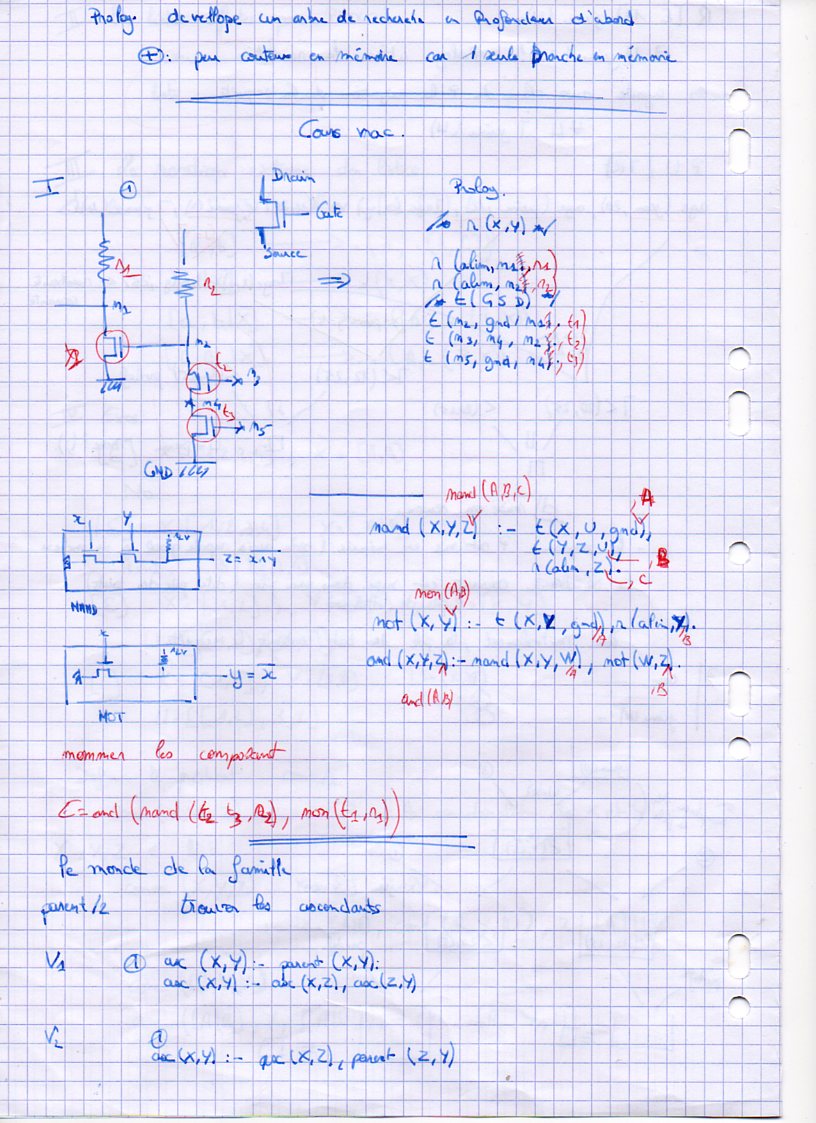 Prolog. developpe un arbre de recherche en Profondeur d'abord
⊕: peu couteux en mémoire car 1 seule branche en mémoire
Cours mac.
I
①
Drain
Gate
Source
r1
n1
r2
n2
t2
n3
n4
t3
n5
GND
⇒
Prolog.
/* r (X,Y) */
r (alim, n1, r1)
r (alim, n2, r2)
/* t (G S D) */
t (n2, gnd, n1, t1)
t (n3, n4, n2, t2)
t (n5, gnd, n4, t3)
nand (A,B,C)
nand (X,Y,Z) :- t (X, U, gnd),
, A
t (Y, Z, U),
, B
r (alim, Z).
, C
x
y
12v
Z = x∧y
NAND
non (A,B)
not (X, Y) :- t (X, Y, gnd), r (alim, Y).
A
B
and (X,Y,Z) :- nand (X,Y,W), not (W,Z).
A
, B
and (A,B)
x
12v
y = x
NOT
nommer les composant
C = and (nand (t2 t3, r2), non (t1, r1))
le monde de la famille
parent/2 trouver les ascendants
V1 ① asc (X,Y) :- parent (X,Y).
asc (X,Y) :- asc (X,Z), asc (Z,Y)
V2 ①
asc (X,Y) :- asc (X,Z), parent (Z,Y)